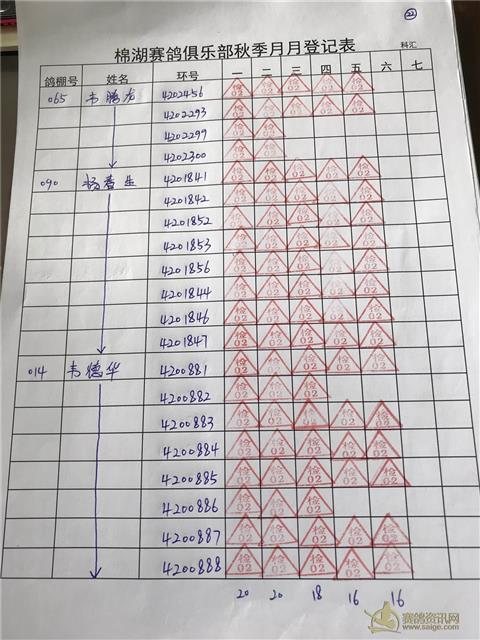 22
棉湖赛鸽俱乐部秋季月月登记表
科汇
鸽棚号 姓名 环号 一 二 三 四 五 六 七
065 韦腾龙 4202456 检02 检02 检02 检02 检02
4202293 检02 检02 检02 检02 检02
4202299 检02 检02
4202300 检02 检02
090 杨春生 4201841 检02 检02 检02 检02 检02
4201842 检02 检02 检02 检02 检02
4201852 检02 检02 检02 检02 检02
4201853 检02 检02 检02 检02 检02
4201856 检02 检02 检02 检02 检02
4201844 检02 检02 检02 检02 检02
4201846 检02 检02 检02 检02 检02
4201847 检02 检02 检02 检02 检02
014 韦德华 4200881 检02 检02 检02 检02 检02
4200882 检02 检02 检02
4200883 检02 检02 检02 检02 检02
4200884 检02 检02 检02 检02 检02
4200885 检02 检02 检02 检02 检02
4200886 检02 检02 检02
4200887 检02 检02 检02 检02 检02
4200888 检02 检02 检02 检02 检02
20 20 18 16 16
赛鸽资讯网
www.saige.com